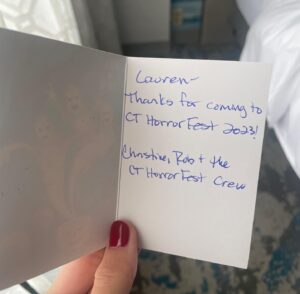 Lauren-
Thanks for coming to
CT HorrorFest 2023!
Christine, Rob + the
CT HorrorFest Crew